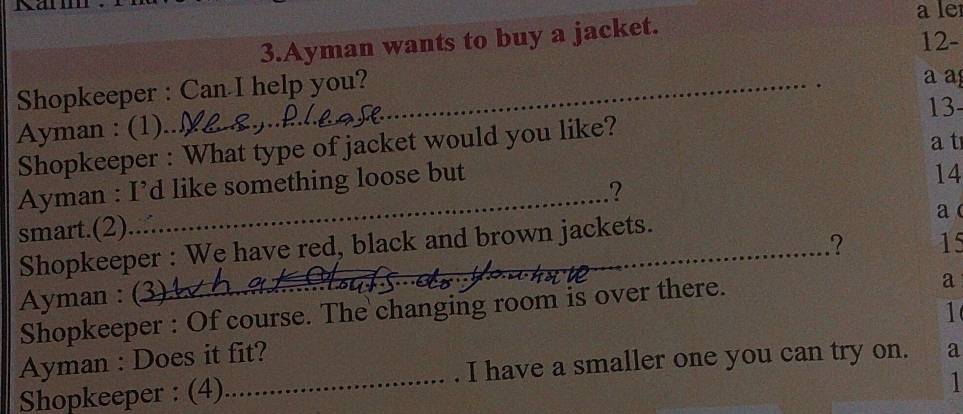 3.Ayman wants to buy a jacket.
Shopkeeper : Can I help you?
Ayman : (1)..Yes, please............ .
Shopkeeper : What type of jacket would you like?
Ayman : I'd like something loose but
smart.(2)............?
Shopkeeper : We have red, black and brown jackets.
Ayman : (3) what do you have............?
Shopkeeper : Of course. The changing room is over there.
Ayman : Does it fit?
Shopkeeper : (4)............ . I have a smaller one you can try on.
a le
12-
a ag
13-
a t
14
a
15
a
1
a
1